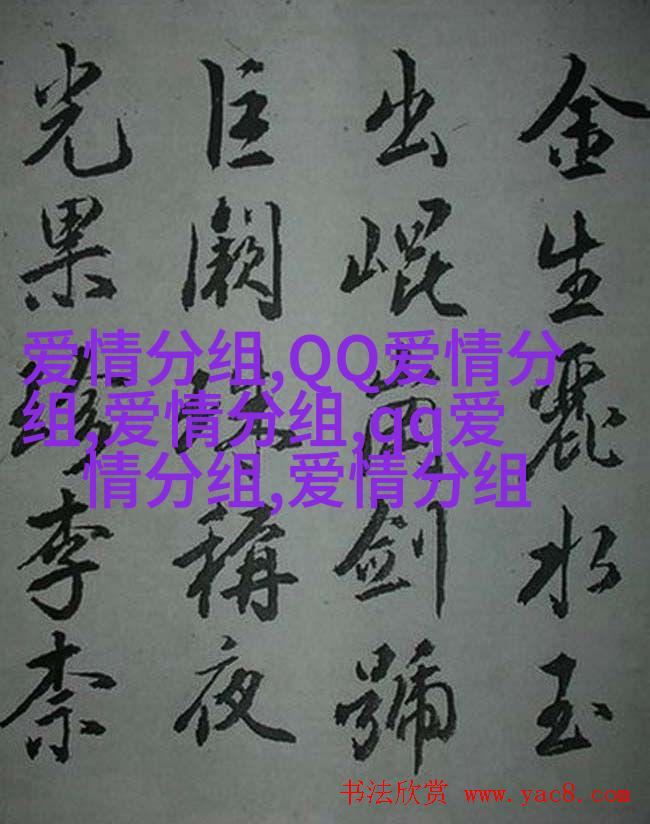 金生麗水玉
出崐岡劍號
巨闕珠稱夜
光果珍李柰
爱情分组,QQ爱情分
组,爱情分组,qq爱
情分组,爱情分组
书法欣赏 www.yac8.com